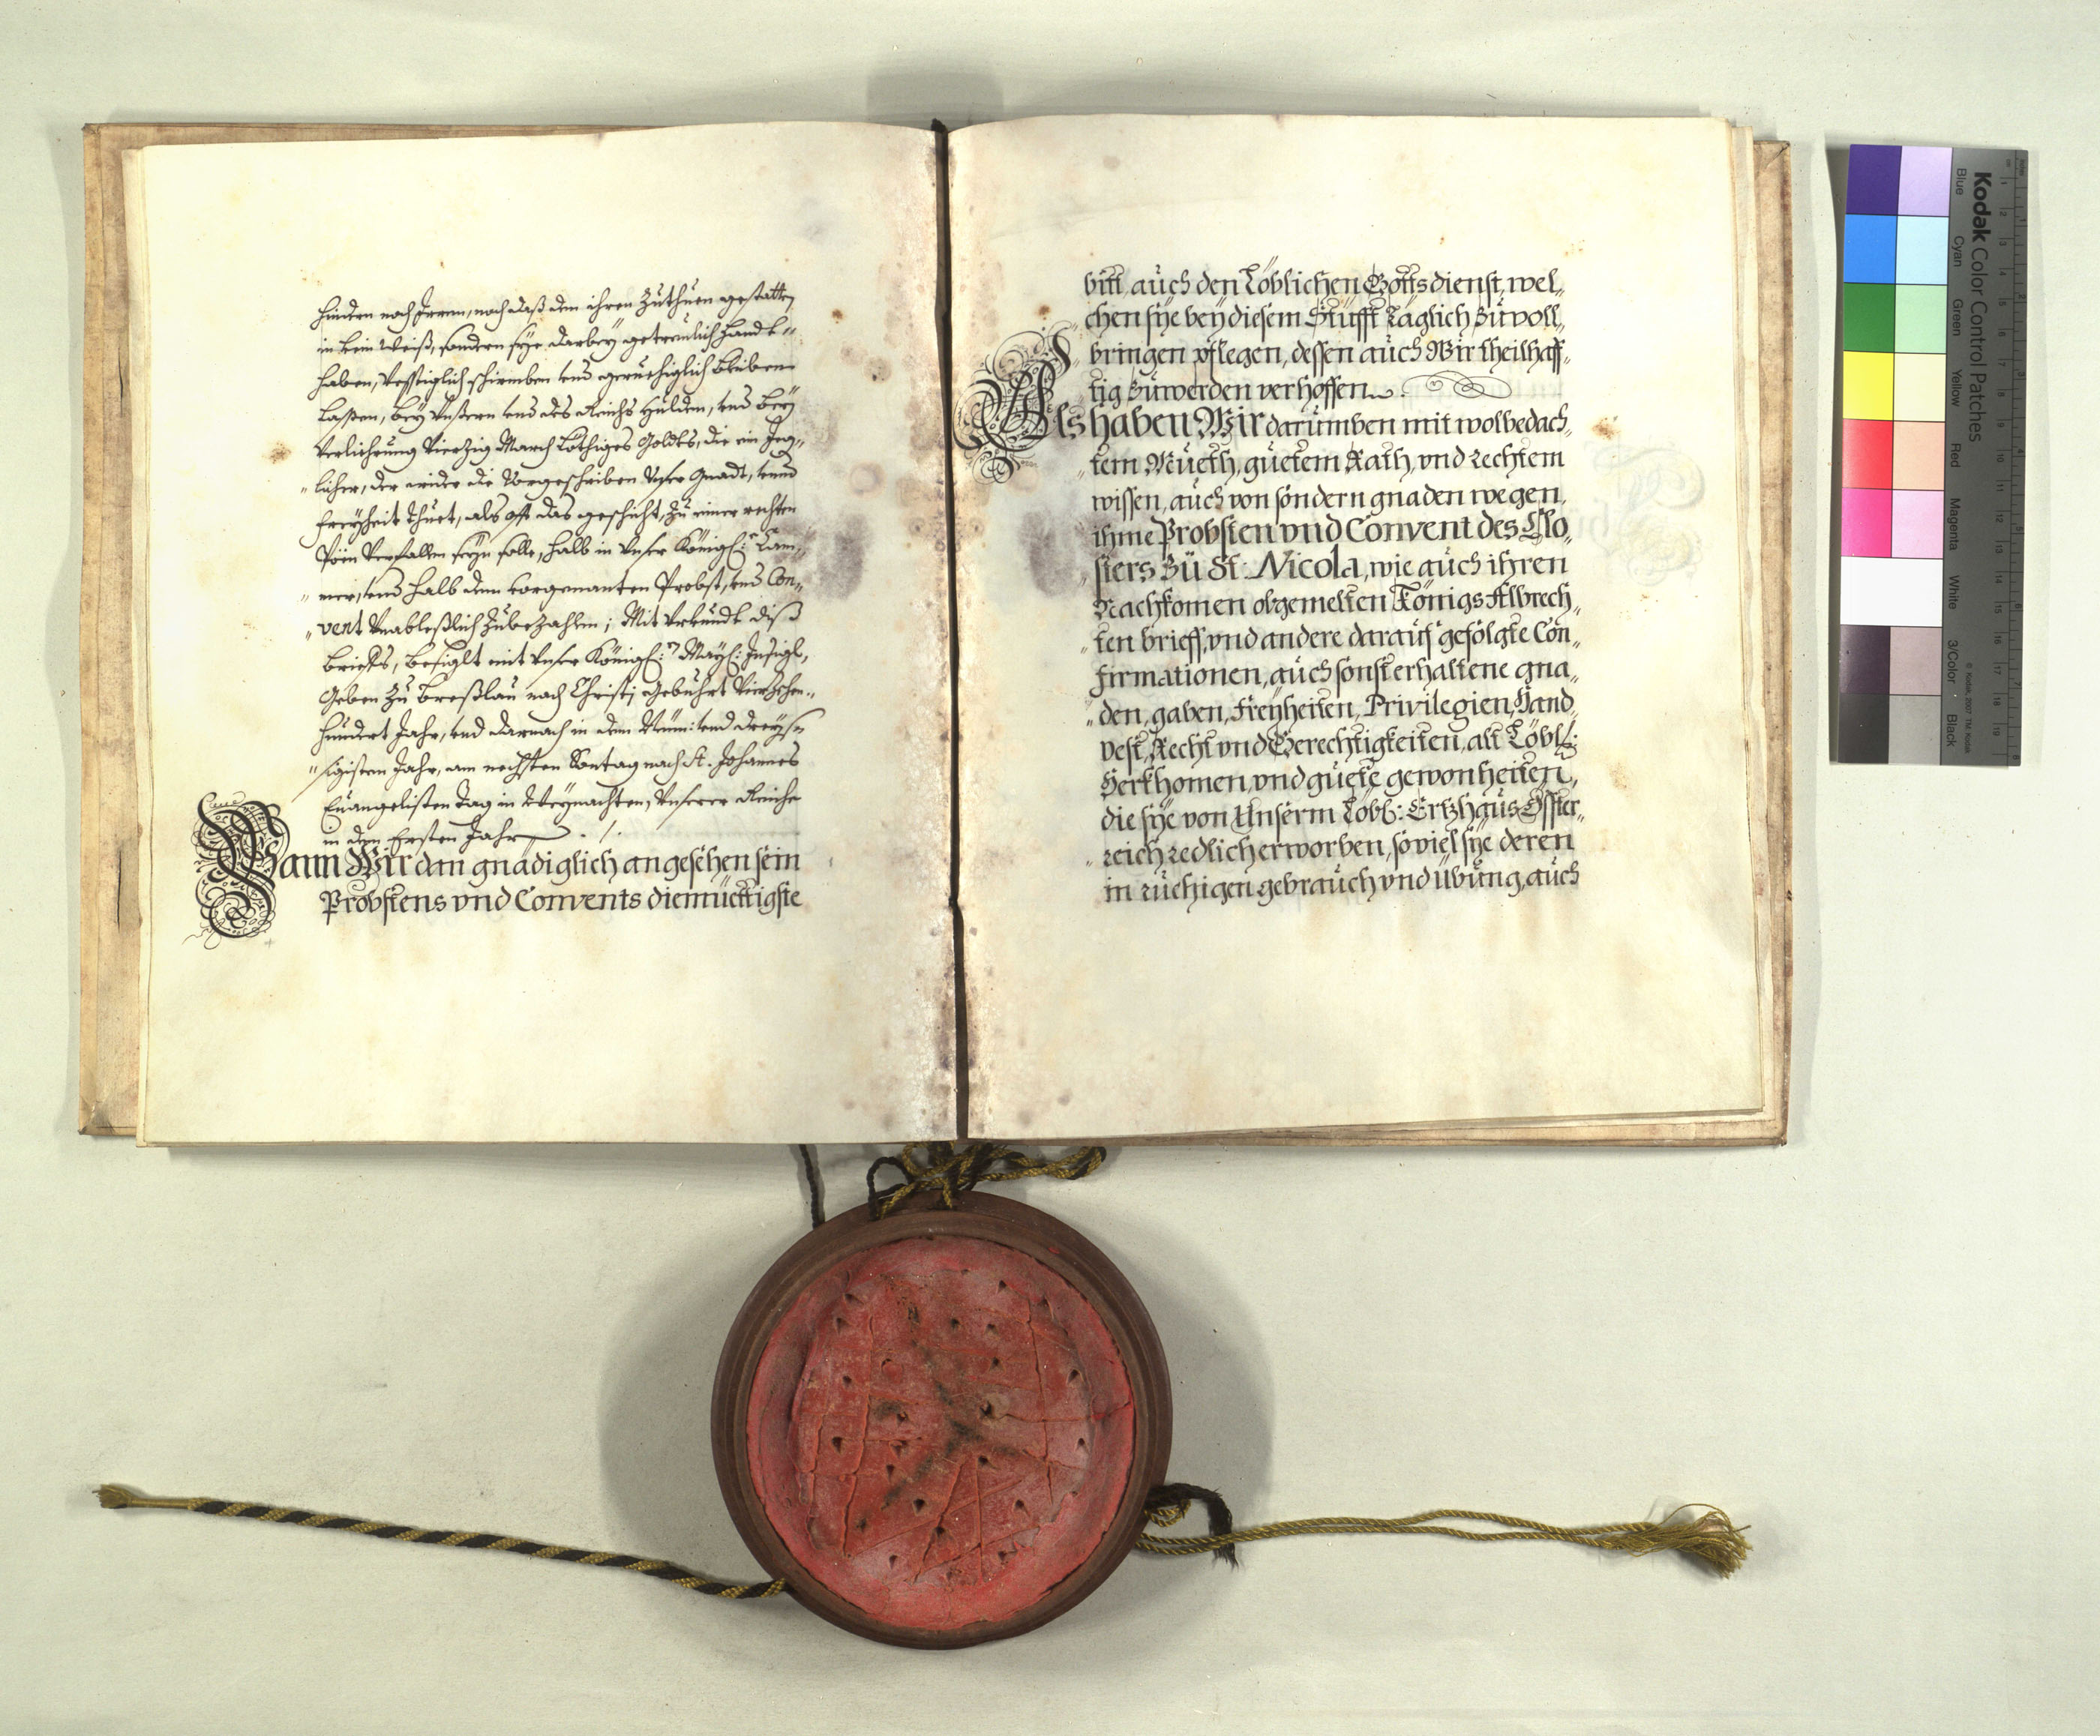 hindern noch Irren, noch daß dem ihren Zuthuen gestatten
in kein Weiß, sondern sye darbey getreulich handt"
haben, vesstiglich schirmben vnd gerüehiglich bleiben
Lassen, bey Vnßern vnd des Reichs Hulden, vnd bey
Verliehrung Vierzig March Löthiges Goldts, die ein Jeg„
" licher, der wider die Vorgeschriben Vnser Gnadt, vnnd
freyheit thuet, als offt das geschicht, zu einer rechten
Pöin Verfallen seyn solle, halb in Vnser Königl: Cam„
" mer, vnd halb dem vorgenanten Probst, vnd Con„
" vent Vnableßlich Zubezahlen; Mit Vrkundt diß
brieffs, besiglt mit Vnser Königl: May: Insigl,
Geben Zu Breßlau nach Christi Geburth Vierzehen„
hundert Jahr, vnd darnach in dem Neun: vnd dreyß„
" sigisten Jahr, am nechsten Sontag nach St. Johannes
Euangelisten tag in Weynachten, Vnserer Reiche
in dem Ersten Jahr . / .
Wann Wir dan gnädiglich angesehen sein
Probstens vnd Convents diemüettigste
bitt, auch den Löblichen Gottsdienst, wel„
" chen sye bey diesem Stüfft Täglich zuvoll„
" bringen pflegen, dessen auch Wir theilhaff„
" tig zuwerden verhoffen.
Als haben Wir darumben mit wolbedach„
" tem Mueth, guetem Rath, vnd rechtem
wissen, auch von sondern gnaden wegen,
ihme Probsten vnd Convent des Clo„
" sters zu St: Nicola, wie auch ihren
Nachkomen obgemelten Königs Albrech„
" ten brieff, vnd andere darauf gefolgte Con„
" firmationen, auch sonst erhaltene gna„
" den, gaben, Freyheiten, Privilegien, Hand„
vest, Recht vnd Gerechtigkeiten, alt Löbl:
Herkhomen, vnd guete gewonheiten,
die sye von Unserm Löbl: Ertzhaus Össter„
" reich redlich erworben, soviel sye deren
in ruehigen gebrauch vnd übung, auch
Kodak Color Control Patches
Blue Cyan Green Yellow Red Magenta White 3/Color Black
© Kodak, 2007 TM: Kodak